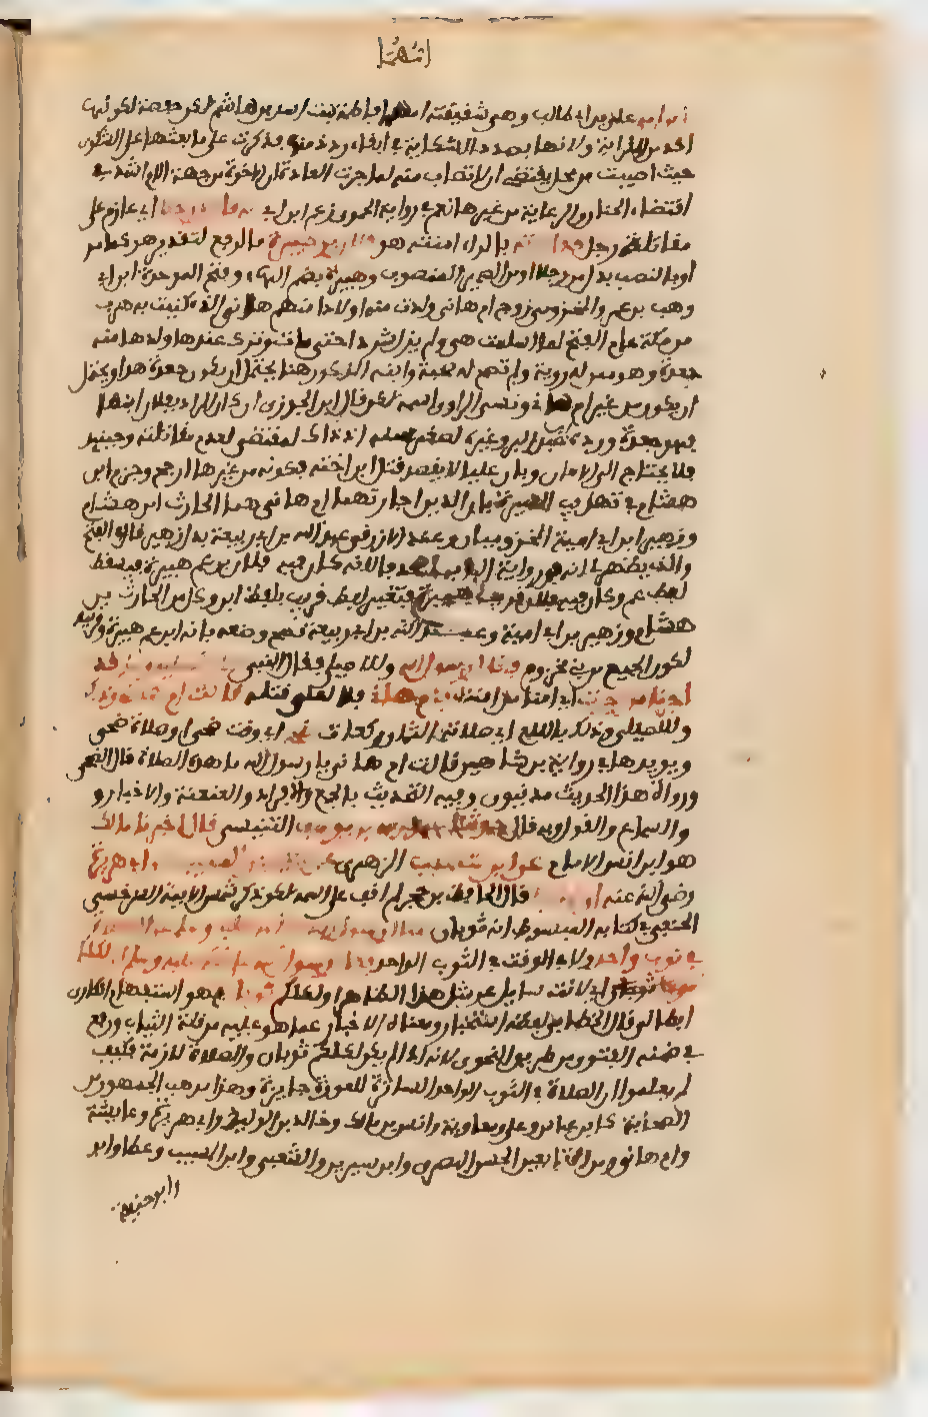 ابن ابي علي بن ابي طالب وهي شقيقته امهما فاطمة بنت اسد بن هاشم لكن خصته لكونها
اكد من القرابة ولانها بصدد الشكاية في اخفار ذمتها فذكرت على ما بعثها على الشكوى
حيث اصيبت من محل يقتضي ان لا تصاب منه لما جرت العادة ان الاخوة من جهة الام اشد في
اقتضاء الحنان والرعاية من غيرها نعم في رواية الحموي زعم ابن ابي انه قاتل رجلا اي عازم على
مقاتلة رجل قد اجرته بالراء امنته هو فلان بن هبيرة بالرفع لتقدير هو كما مر
او بالنصب بدل من رجلا او من الضمير المنصوب وهبيرة بضم الهاء وفتح الموحدة ابن ابي
وهب بن عمرو المخزومي زوج ام هاني ولدت منه اولادا منهم هاني الذي كنيت به هرب
من مكة عام الفتح لما اسلمت هي ولم يزل مشركا حتى مات وترك عندها ولدها منه
جعدة وهو ممن له روية ولم تصح له صحبة وابنه المذكور هنا يحتمل ان يكون جعدة هذا ويحتمل
ان يكون من غير ام هاني ونسي الراوي اسمه لكن قال ابن الجوزي ان كان المراد بفلان ابنها
فهو جعدة ورده ابن عبد البر وغيره لصغر سنه اذ ذاك المقتضي لعدم مقاتلته وحينئذ
فلا يحتاج الى الامان وبان عليا لا يقصد قتل ابن اخته فكونه من غيرها ارجح وجزم ابن
هشام في تهذيب السيرة بان الذين اجارتهما ام هاني هما الحارث ابن هشام
وزهير ابن ابي امية المخزوميان وعند الازرقي عبد الله بن ابي ربيعة بدل زهير قال في الفتح
والذي يظهر لي ان في رواية الباب حذفا لانه كان فيه فلان بن عم هبيرة فسقط
لفظ عم او كان فيه فلان قريب هبيرة فتغير لفظ قريب بلفظ ابن وكل من الحارث بن
هشام وزهير بن ابي امية وعبد الله بن ابي ربيعة يصح وصفه بانه ابن عم هبيرة وقريبه
لكون الجميع من بني مخزوم فقال رسول الله وللاصيلي فقال النبي صلى الله عليه وسلم قد
اجرنا من اجرت اي امنا من امنت يا ام هاني فلا لعلي قتله قالت ام هاني وذاك
وللاصيلي وذلك باللام اي صلاته الثمان ركعات ضحى اي وقت ضحى او صلاة ضحى
ويويده ما في رواية بن شاهين قالت ام هاني يا رسول الله ما هذه الصلاة قال الضحى
ورواة هذا الحديث مدنيون وفيه التحديث بالجمع والافراد والعنعنة والاخبار و
والسماع والقول وبه قال حدثنا عبد الله بن يوسف التنيسي قال اخبرنا مالك
هو ابن انس الامام عن ابن شهاب الزهري عن سعيد بن المسيب عن ابي هريرة
رضي الله عنه ان سائلا قال الحافظ بن حجر لم اقف على اسمه لكن ذكر شمس الايمة السرخسي
الحنفي في كتابه المبسوط انه ثوبان سال رسول الله صلى الله عليه وسلم عن الصلاة
في ثوب واحد ولابي الوقت في الثوب الواحد فقال رسول الله صلى الله عليه وسلم اولكلكم
ثوبان اي لانت سايل عن مثل هذا الظاهر اولكلكم ثوبان فهو استفهام انكاري
ابطالي وقال الخطابي لفظه استخبار ومعناه الاخبار عما هو عليه من قلة الثياب ووقع
في ضمنه الفتوى من طريق الفحوى لانه اذا لم يكن لكلكم ثوبان والصلاة لازمة فكيف
لم يعلموا ان الصلاة في الثوب الواحد الساترة للعورة جايزة وهذا مذهب الجمهور من
الصحابة كابن عباس وعلي ومعاوية وانس بن مالك وخالد بن الوليد وابي هريرة وعايشة
وام هاني ومن التابعين الحسن البصري وابن سيرين والشعبي وابن المسيب وعطا وابو
وابو حنيفة